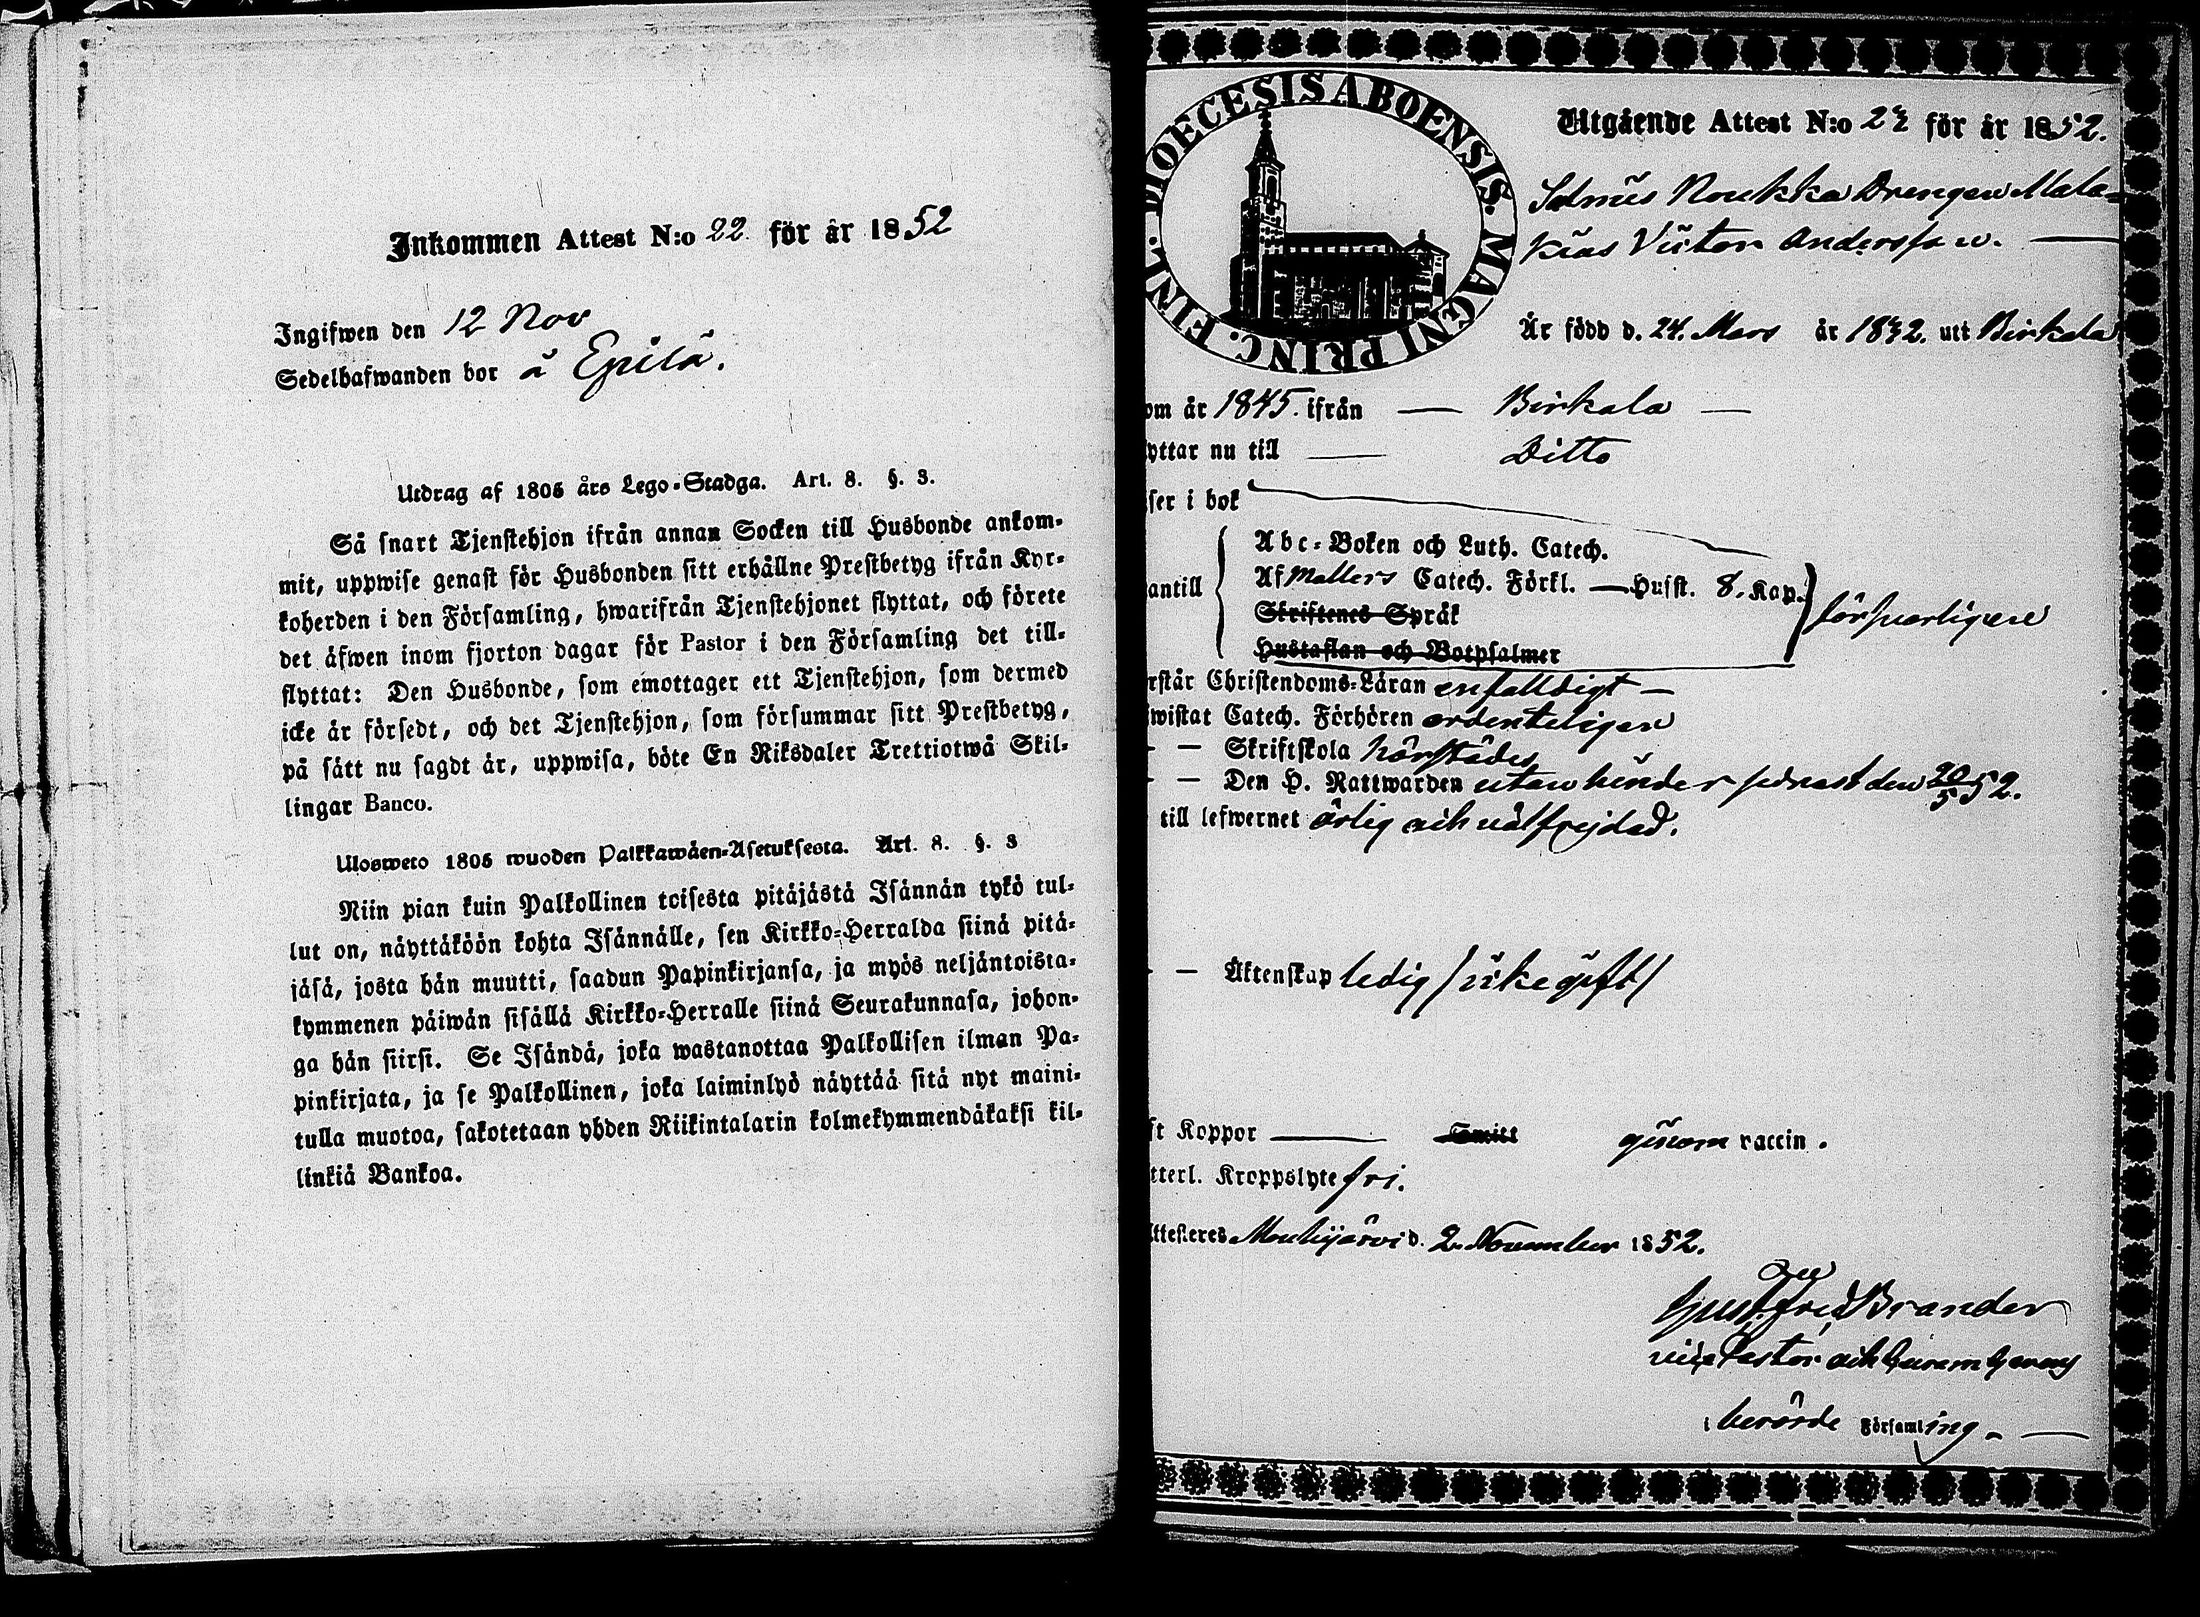 Inkommen Attest N:o 22. för år 1852
Ingifwen den 12 Nov
Sedelhafwanden bor å Epilä.
Utdrag af 1805 års Lego-Stadga. Art. 8. §. 3.
Så snart Tjenstehjon ifrån annan Socken till Husbonde ankom-
mit, uppwise genast för Husbonden sitt erhållne Prestbetyg ifrån Kyr-
koherden i den Församling, hwarifrån Tjenstehjonet flyttat, och förete
det äfwen inom fjorton dagar för Pastor i den Församling det till-
flyttat: Den Husbonde, som emottager ett Tjenstehjon, som dermed
icke är försedt, och det Tjenstehjon, som försummar sitt Prestbetyg,
på sätt nu sagdt är, uppwisa, böte En Riksdaler Trettiotwå Skil-
lingar Banco.
Ulosweto 1805 wuoden Palkkawäen-Asetuksesta. Art. 8. §. 3
Niin pian kuin Palkollinen toisesta pitäjästä Isännän tykö tul-
lut on, näyttäköön kohta Isännälle, sen Kirkko-Herralda siinä pitä-
jäsä, josta hän muutti, saadun Papinkirjansa, ja myös neljäntoista-
kymmenen päiwän sisällä Kirkko-Herralle siinä Seurakunnasa, johon-
ga hän siirsi. Se Isändä, joka wastanottaa Palkollisen ilman Pa-
pinkirjata, ja se Palkollinen, joka laiminlyö näyttää sitä nyt maini-
tulla muotoa, sakotetaan yhden Riikintalarin kolmekymmendäkaksi kil-
linkiä Bankoa.
DIOECESIS ABOENSIS. MAGNI PRINC. FINL.
Utgående Attest N:o 22 för år 1852.
Noukka Drengen Mala-
kias Victor Andersson.
Är född d. 24. Mars år 1832. utt Birkala
om år 1845. ifrån Birkala
yttar nu till Ditto
ser i bok
Abc-Boken och Luth. Catech.
antill Af Mallers Catech. Förkl. Husst. 8. Kap. försvarligen
Skriftenes Språk
Hustaflan och Botpsalmer
rstår Christendoms-Läran enfalldigt
wistat Catech. Förhören ordenteligen
Skriftskola härstädes
Den H. Nattwarden utan hinder senast den 20/5 52.
till lefwernet ärlig och välfrejdad.
Äktenskap ledig /icke gift/
ft Koppor Smitt genom vaccin.
tterl. Kroppslyte fri.
ttesteres Mouhijärvi d. 2. November 1852.
Gust. Fred Brander
vice Pastor
i berörde Församling.